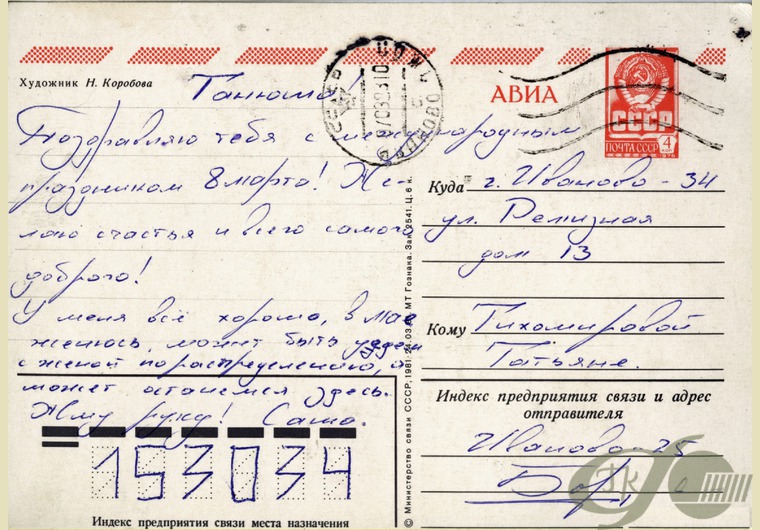 Художник Н. Коробова
АВИА
СССР
ПОЧТА СССР 4
Танюша!
Поздравляю тебя с международным
праздником 8 марта! Же-
лаю счастья и всего самого
доброго!
У меня всё хорошо, в мае
женюсь, может быть уедем
с женой по распределению, а
может останемся здесь.
Жму руку! Саша.
153034
Индекс предприятия связи места назначения
© Министерство связи СССР, 1981. МТ Гознака. Зак. 2541. Ц. 6 к.
Куда г. Иваново - 34
ул. Релизная
дом 13
Кому Тихомировой
Татьяне.
Индекс предприятия связи и адрес
отправителя
Иваново - 25